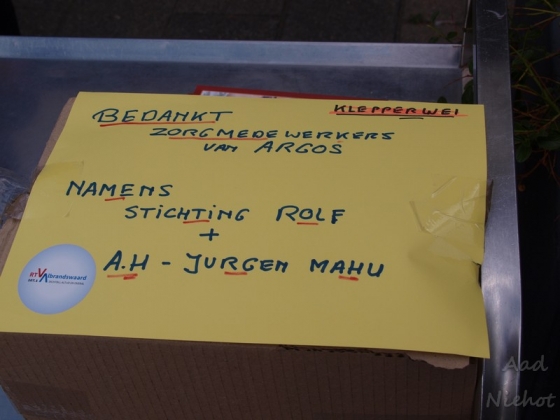 KLEPPERWEI
BEDANKT
ZORGMEDEWERKERS
VAN ARGOS
NAMENS
STICHTING ROLF
+
A.H - JURGEN MAHU
RTV Albrandswaard
Aad
Niehot